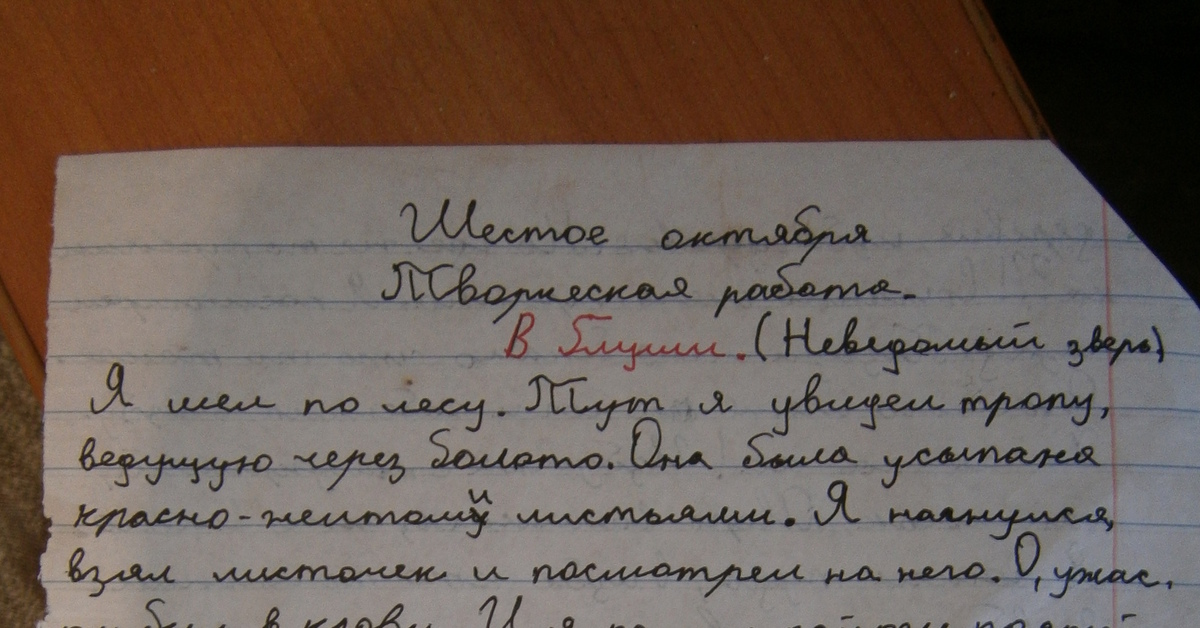 Шестое октября
Творческая работа.
В глуши. (Неведомый зверь)
Я шел по лесу. Тут я увидел тропу,
ведущую через болото. Она была усыпана
красно-желтыми листьями. Я нагнулся,
взял листочек и посмотрел на него. О, ужас,
он был в крови. И я